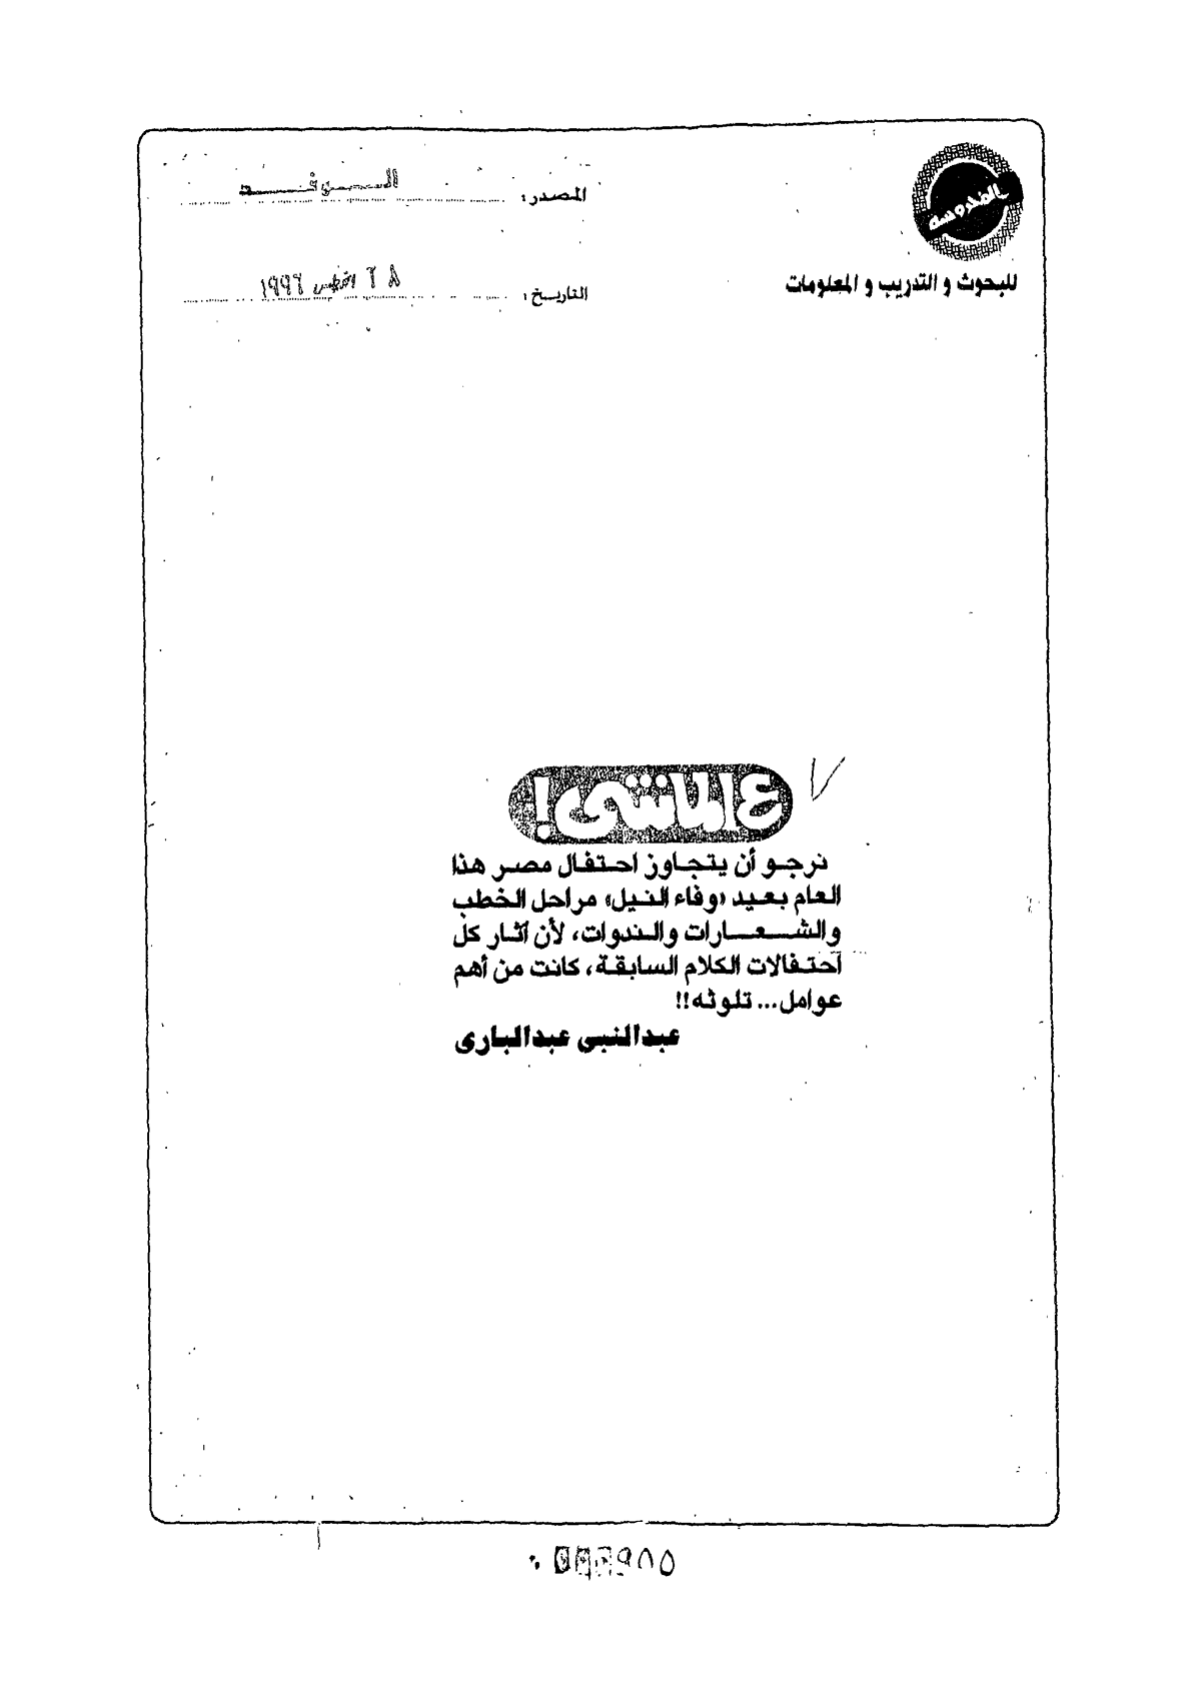 المحروسة
للبحوث و التدريب و المعلومات
المصدر: الوفد
التاريخ: ٢٨ أغسطس ١٩٩٦
ع الماشى!
نرجو أن يتجاوز احتفال مصر هذا
العام بعيد «وفاء النيل» مراحل الخطب
والشعارات والندوات، لأن آثار كل
احتفالات الكلام السابقة، كانت من أهم
عوامل... تلوثه!!
عبدالنبى عبدالبارى